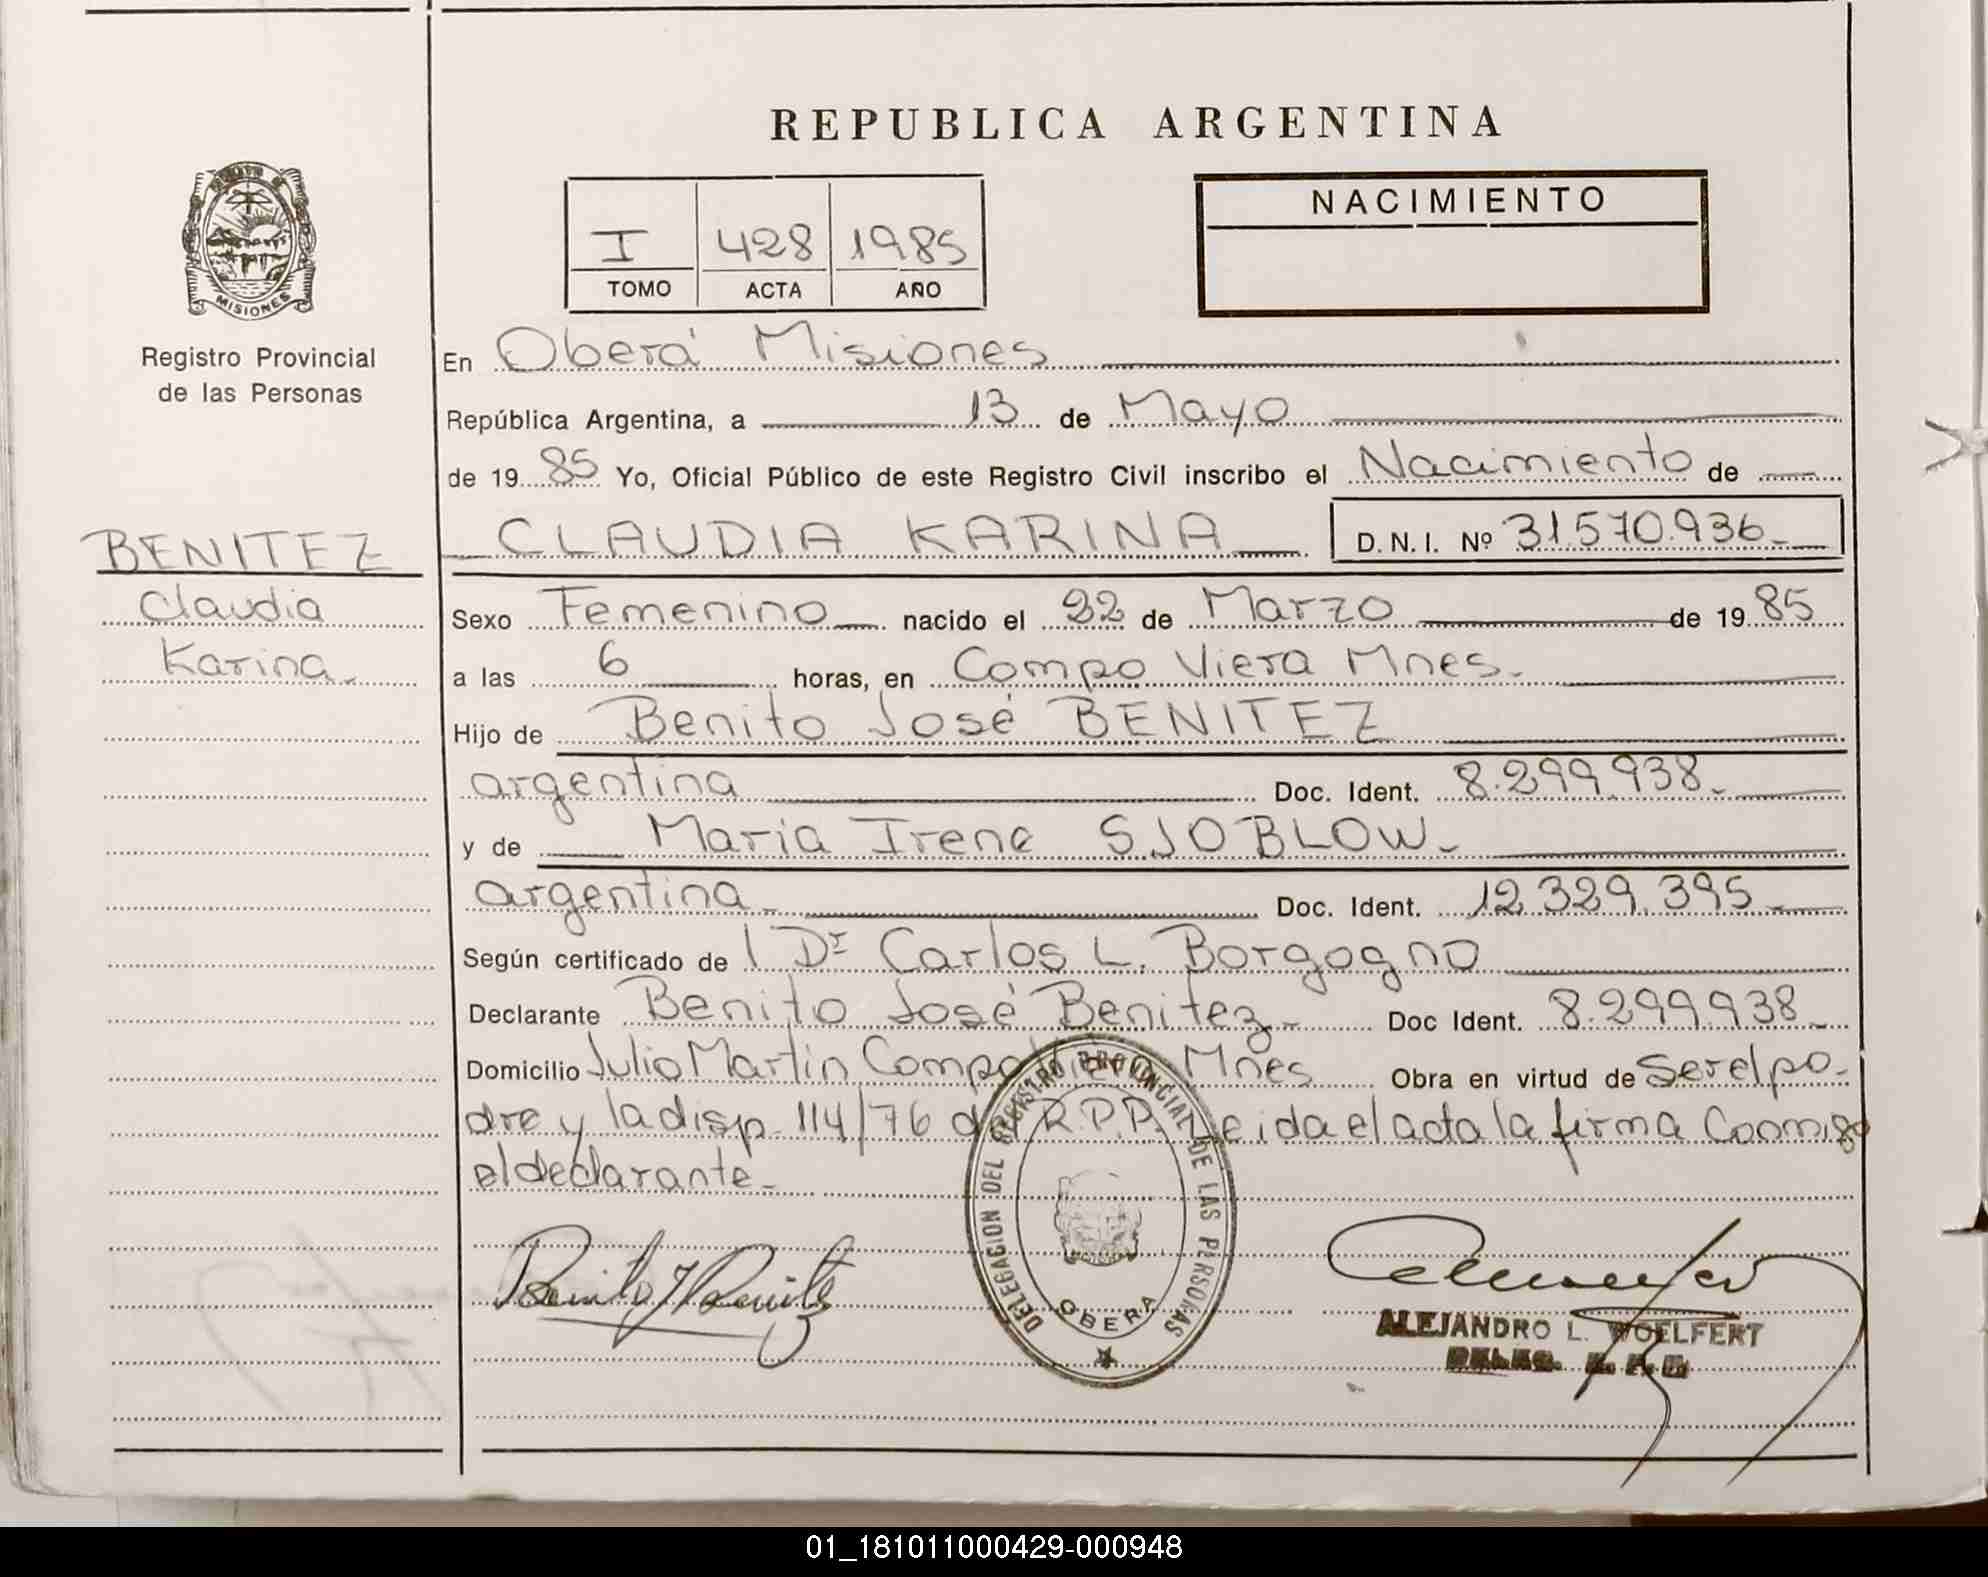 REPUBLICA ARGENTINA
NACIMIENTO
I 428 1985
TOMO ACTA AÑO
MISIONES
Registro Provincial
de las Personas
En Oberá Misiones
República Argentina, a 13 de Mayo
de 1985 Yo, Oficial Público de este Registro Civil inscribo el Nacimiento de
CLAUDIA KARINA D.N.I. Nº 31.570.936.-
BENITEZ
Claudia
Karina.
Sexo Femenino nacido el 22 de Marzo de 1985
a las 6 horas, en Compo Viera Mnes.
Hijo de Benito José BENITEZ
argentina Doc. Ident. 8.299.938.
y de Maria Irene SJOBLOW.
argentina. Doc. Ident. 12.329.395
Según certificado de l Dr Carlos L. Borgogno
Declarante Benito José Benitez Doc Ident. 8.299.938
Domicilio Julio Martin Compo Viera Mnes Obra en virtud de Ser el pa-
dre y la disp. 114/76 del R.P.P. Leida el acta la firma Conmigo
el declarante.
DELEGACION DEL REGISTRO PROVINCIAL DE LAS PERSONAS
OBERA
Benito J Benitez
ALEJANDRO L. WOELFERT
01_181011000429-000948